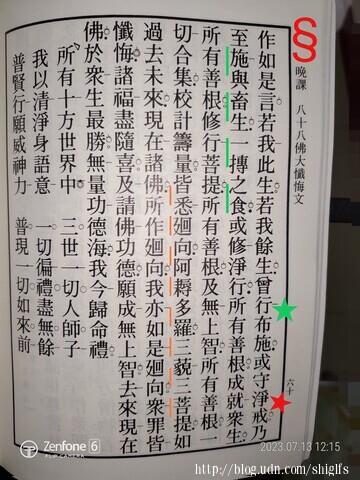 §
晚課 八十八佛大懺悔文 六十
作如是言若我此生若我餘生曾行布施或守淨戒乃
至施與畜生一摶之食或修淨行所有善根成就衆生
所有善根修行菩提所有善根及無上智所有善根一
切合集校計籌量皆悉迴向阿耨多羅三藐三菩提如
過去未來現在諸佛所作迴向我亦如是迴向衆罪皆
懺悔諸福盡隨喜及請佛功德願成無上智去來現在
佛於衆生最勝無量功德海我今歸命禮
所有十方世界中 三世一切人師子
我以清淨身語意 一切徧禮盡無餘
普賢行願威神力 普現一切如來前
Zenfone 6
2023.07.13 12:15
http://blog.udn.com/shiglfs